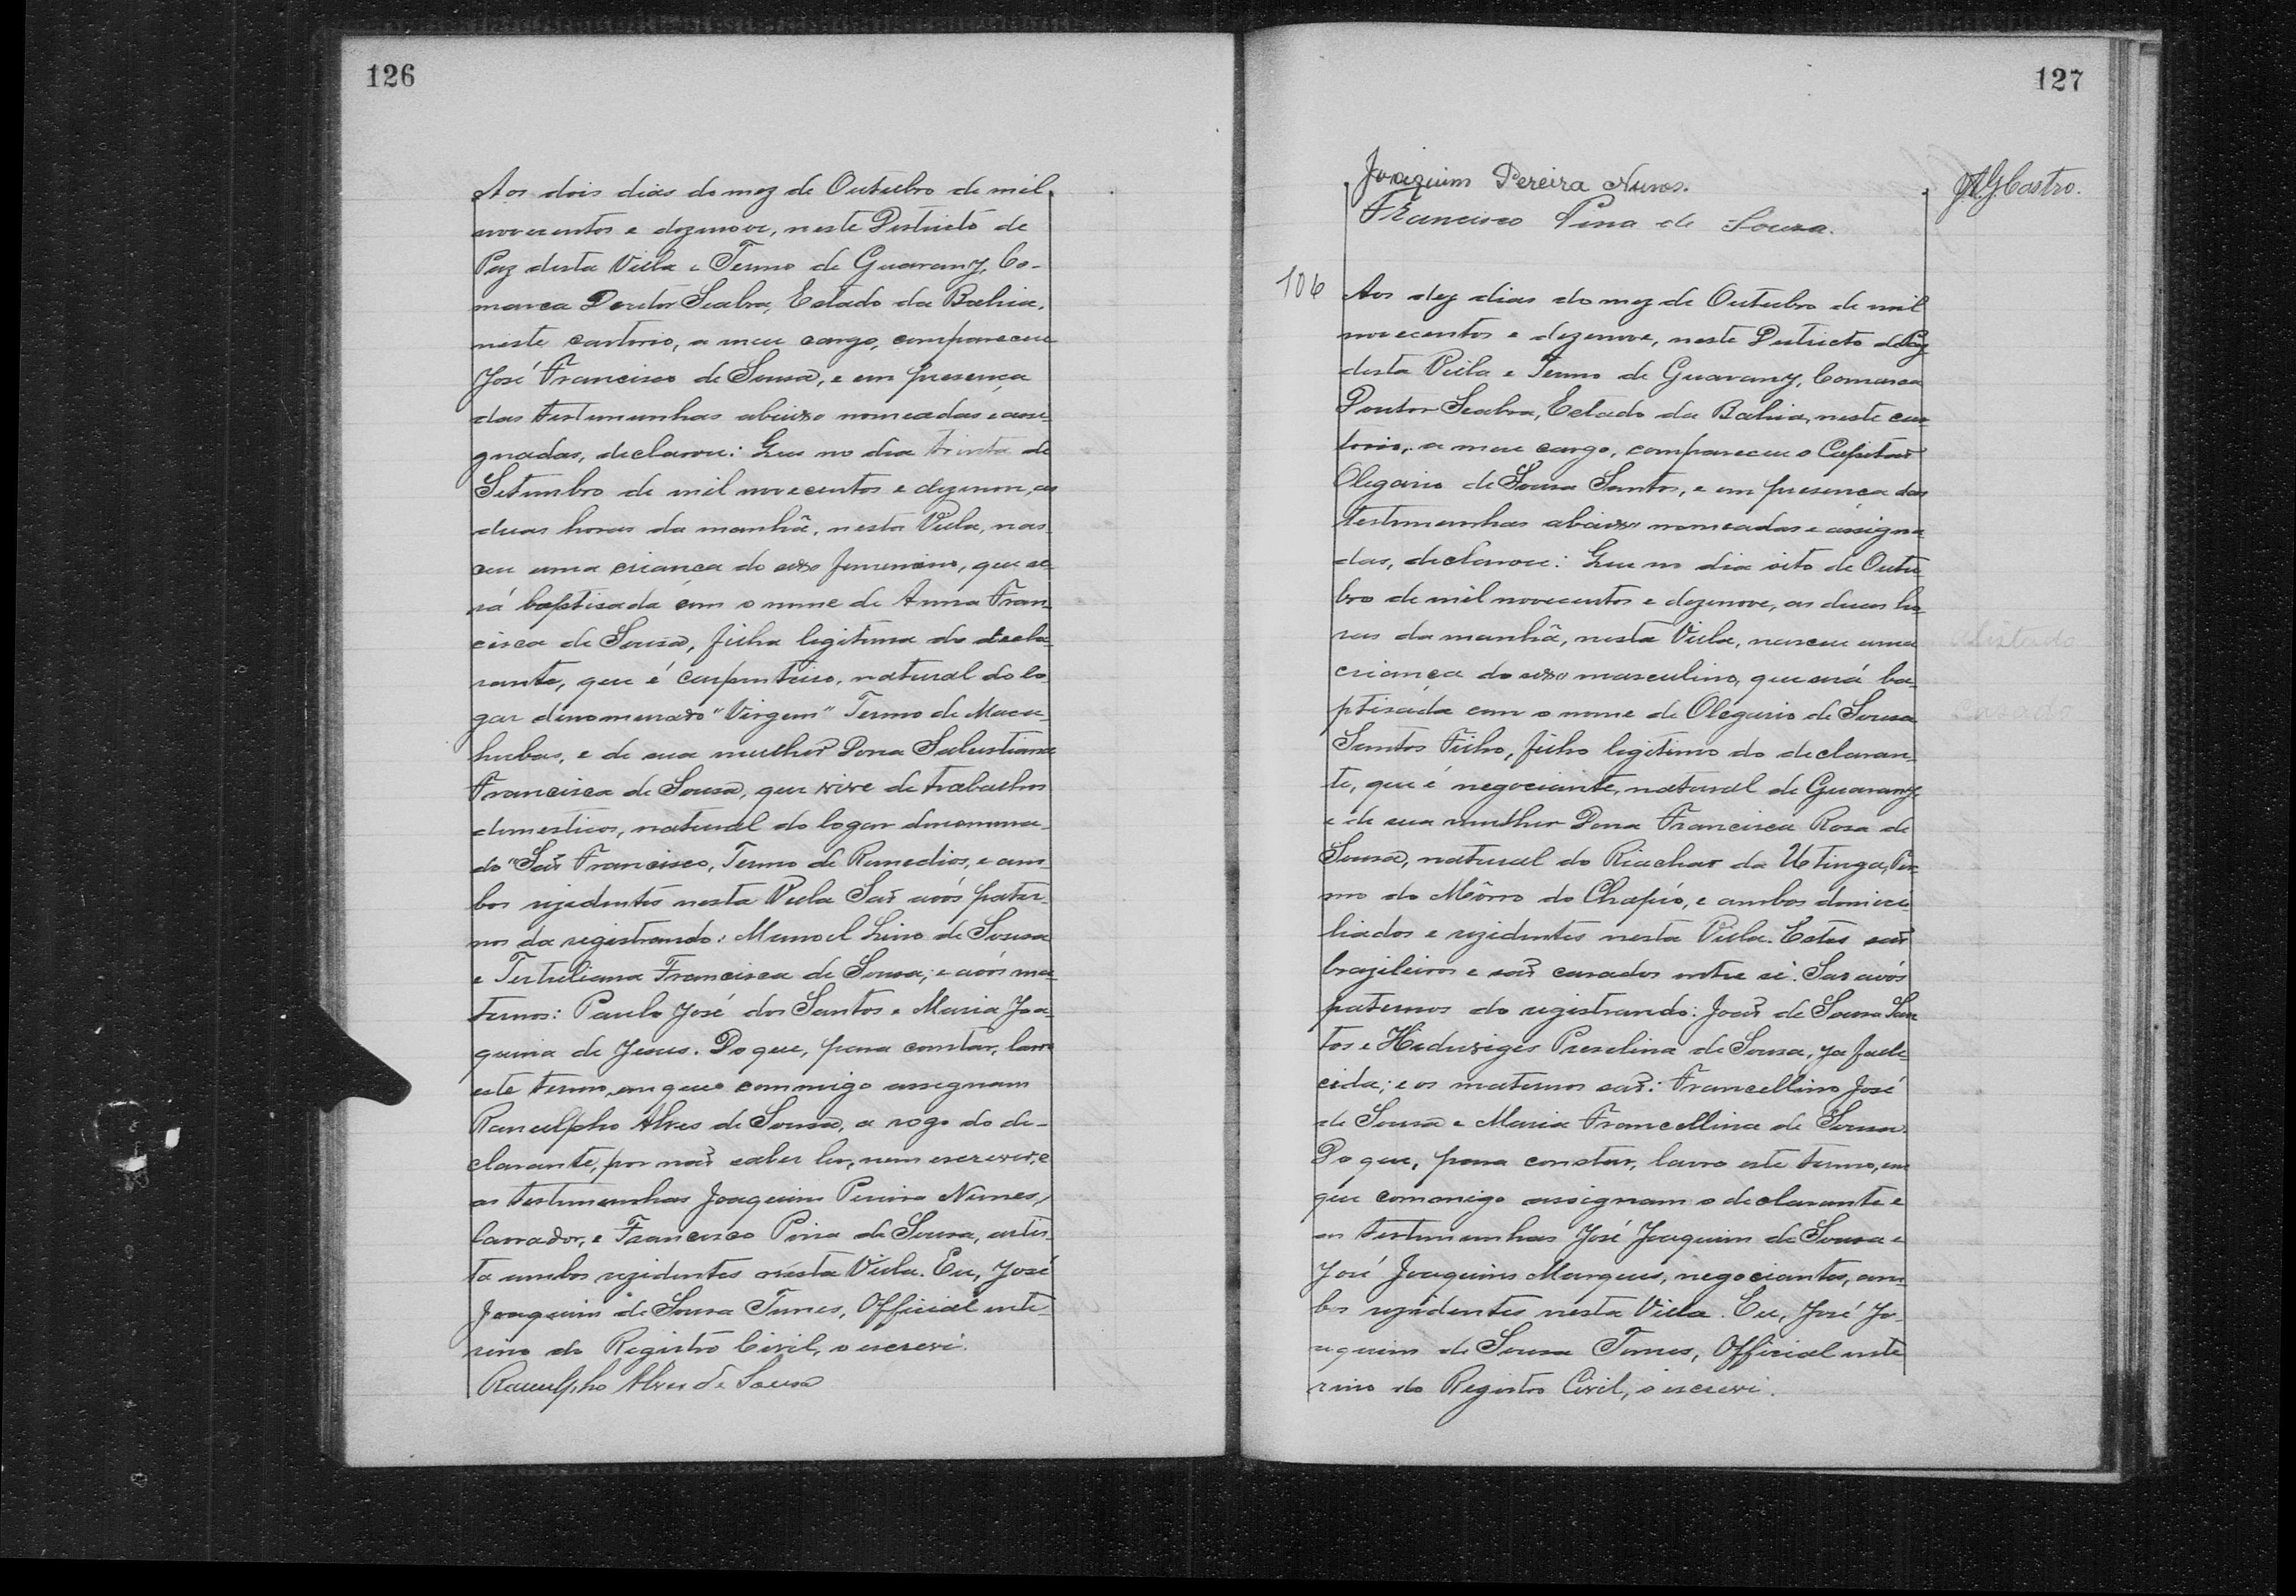 126
Aos dois dias do mez de Outubro de mil
novecentos e dezenove, neste Districto de
Paz desta Villa e Termo de Guarany, Co-
marca Doutor Seabra, Estado da Bahia,
neste cartorio, a meu cargo, compareceu
José Francisco de Sousa, e em presença
das testemunhas abaixo nomeadas e assi-
gnadas, declarou: Que no dia trinta de
Setembro de mil novecentos e dezenove, as
duas horas da manhã, nesta Villa, nas-
ceu uma criança do sexo femenino, que se-
rá baptisada com o nome de Anna Fran-
cisca de Sousa, filha legitima do decla-
rante, que é carpinteiro, natural do lo-
gar denominado "Virgem" Termo de Macau-
hubas, e de sua mulher Dona Salustiana
Francisca de Sousa, que vive de trabalhos
domesticos, natural do logar denomina-
do "Saõ Francisco, Termo de Remedios, e am-
bos rezidentes nesta Villa Saõ avós pater-
nos da registrando: Manoel Lino de Sousa
e Tertuliana Francisca de Sousa; e avós ma-
ternos: Paulo José dos Santos e Maria Joa-
quina de Jesus. Do que, para constar, lavro
este termo, em que commigo assignam
Ranulpho Alves de Sousa, a rogo do de-
clarante, por naõ saber ler, nem escrever, e
as testemunhas Joaquim Pereira Nunes,
lavrador, e Francisco Pina de Sousa, artis-
ta ambos rezidentes nesta Villa. Eu, José
Joaquim de Sousa Tunes, Official inte-
rino do Registro Civil, o escrevi.
Ranulpho Alves de Sousa
127
Joaquim Pereira Nunes.
Francisco Pina de Souza.
J.A.G. Castro.
106
Aos dez dias do mez de Outubro de mil
novecentos e dezenove, neste Districto de Paz
desta Villa e Termo de Guarany, Comarca
Doutor Seabra, Estado da Bahia, neste car
torio, a meu cargo, compareceu o Capitaõ
Olegario de Sousa Santos, e em presença das
testemunhas abaixo nomeadas e assigna
das, declarou: Que no dia oito de Outu-
bro de mil novecentos e dezenove, as duas ho-
ras da manhã, nesta Villa, nasceu uma
criança do sexo masculino, que será ba-
ptisada com o nome de Olegario de Sousa
Santos Filho, filho legitimo do declaran-
te, que é negociante, natural de Guarany
e de sua mulher Dona Francisca Rosa de
Sousa, natural do Riachaõ da Utinga, Ter-
mo do Môrro do Chapéo, e ambos domici-
liados e rezidentes nesta Villa. Estes saõ
brazileiros e saõ casados entre si. Saõ avós
paternos do registrando: Joaõ de Sousa San
tos e Heduviges Preselina de Sousa, ja fale-
cida; e os maternos saõ: Francellino José
de Sousa e Maria Francellina de Sousa.
Do que, para constar, lavro este termo, em
que commigo assignam o declarante e
as testemunhas José Joaquim de Sousa e
José Joaquim Marques, negociantes, am-
bos rezidentes nesta Villa. Eu, José Jo-
aquim de Sousa Tunes, Official inte
rino do Registro Civil, o escrevi.